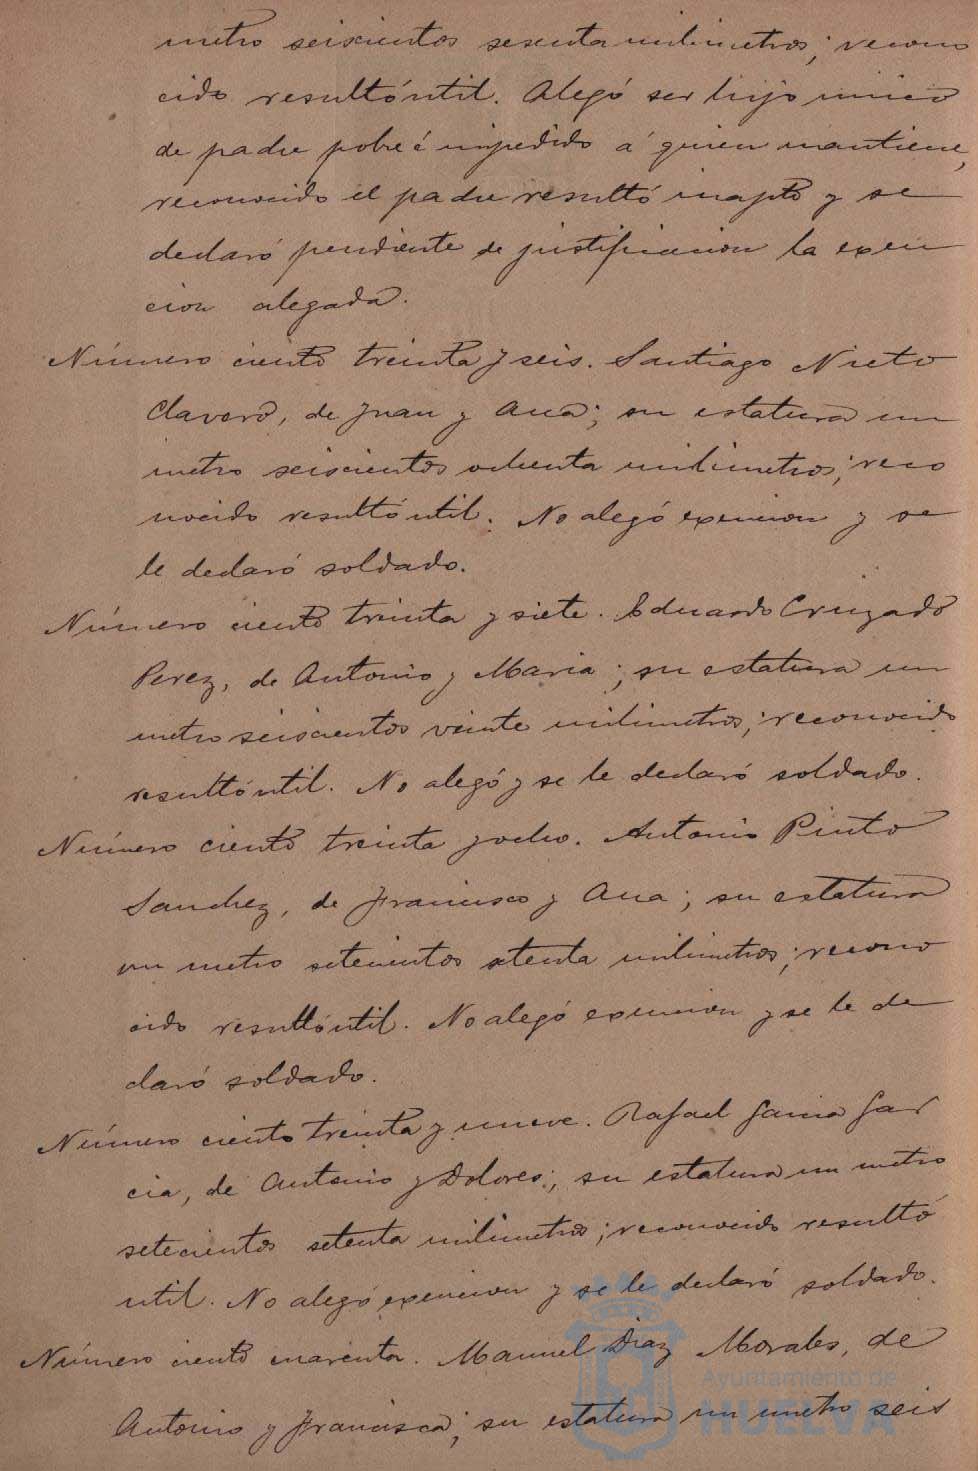 metro seiscientos sesenta milimetros; recono
cido resultó útil. Alegó ser hijo unico
de padre pobre é impedido á quien mantiene,
reconocido el padre resultó inapto y se
declaró pendiente de justificacion la exen
cion alegada.
Número ciento treinta y seis. Santiago Nieto
Clavero, de Juan y Ana; su estatura un
metro seiscientos ochenta milimetros; reco
nocido resultó útil. No alegó exencion y se
le declaró soldado.
Número ciento treinta y siete. Eduardo Cruzado
Perez, de Antonio y Maria; su estatura un
metro seiscientos veinte milimetros; reconocido
resultó útil. No alegó y se le declaró soldado.
Número ciento treinta y ocho. Antonio Pinto
Sanchez, de Francisco y Ana; su estatura
un metro setecientos setenta milimetros; recono
cido resultó útil. No alegó exencion y se le de
claró soldado.
Número ciento treinta y nueve. Rafael Garcia Gar
cia, de Antonio y Dolores; su estatura un metro
setecientos setenta milimetros; reconocido resultó
util. No alegó exencion y se le declaró soldado.
Número ciento cuarenta. Manuel Diaz Morales, de
Antonio y Francisca; su estatura un metro seis
Ayuntamiento de
HUELVA